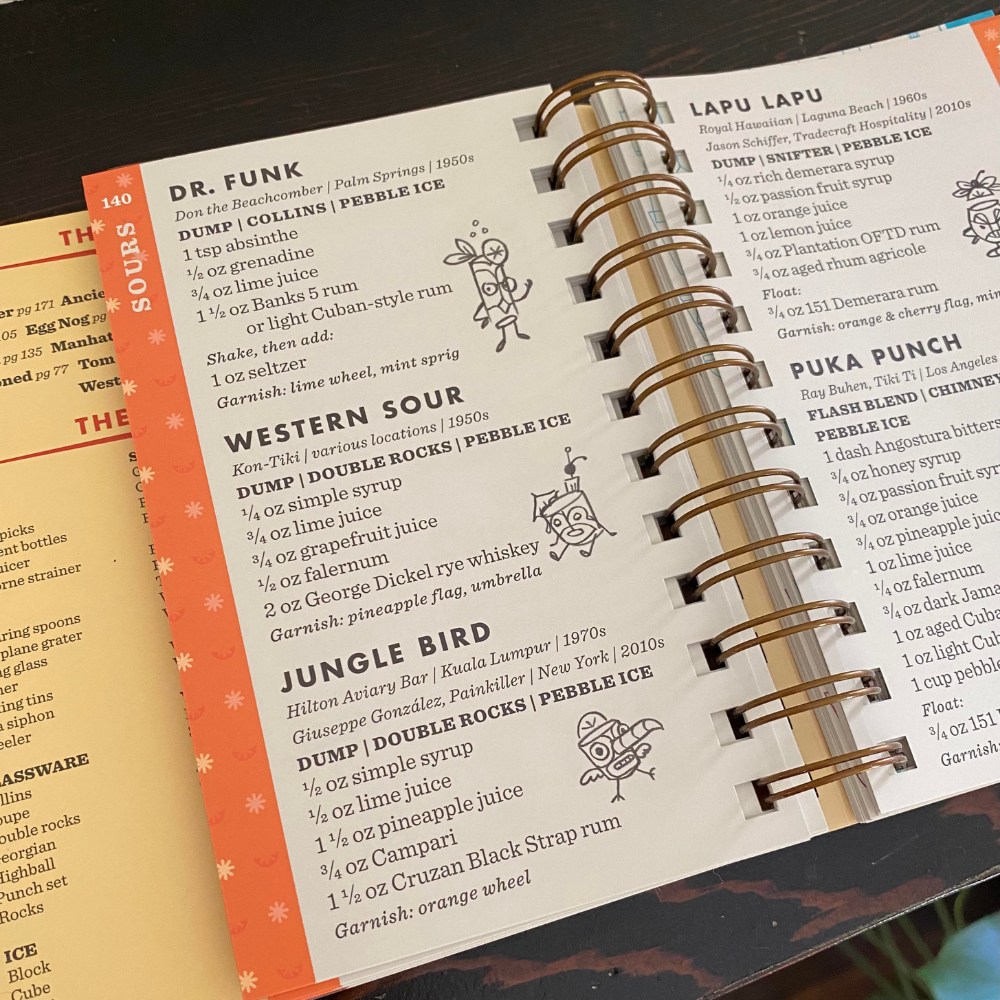 140
SOURS
DR. FUNK
Don the Beachcomber | Palm Springs | 1950s
DUMP | COLLINS | PEBBLE ICE
1 tsp absinthe
1/2 oz grenadine
3/4 oz lime juice
1 1/2 oz Banks 5 rum
or light Cuban-style rum
Shake, then add:
1 oz seltzer
Garnish: lime wheel, mint sprig
WESTERN SOUR
Kon-Tiki | various locations | 1950s
DUMP | DOUBLE ROCKS | PEBBLE ICE
1/4 oz simple syrup
3/4 oz lime juice
3/4 oz grapefruit juice
1/2 oz falernum
2 oz George Dickel rye whiskey
Garnish: pineapple flag, umbrella
JUNGLE BIRD
Hilton Aviary Bar | Kuala Lumpur | 1970s
Giuseppe González, Painkiller | New York | 2010s
DUMP | DOUBLE ROCKS | PEBBLE ICE
1/2 oz simple syrup
1/2 oz lime juice
1 1/2 oz pineapple juice
3/4 oz Campari
1 1/2 oz Cruzan Black Strap rum
Garnish: orange wheel
LAPU LAPU
Royal Hawaiian | Laguna Beach | 1960s
Jason Schiffer, Tradecraft Hospitality | 2010s
DUMP | SNIFTER | PEBBLE ICE
1/4 oz rich demerara syrup
1/2 oz passion fruit syrup
1 oz orange juice
1 oz lemon juice
3/4 oz Plantation OFTD rum
3/4 oz aged rhum agricole
Float:
3/4 oz 151 Demerara rum
Garnish: orange & cherry flag, min
PUKA PUNCH
Ray Buhen, Tiki Ti | Los Angeles
FLASH BLEND | CHIMNEY
PEBBLE ICE
1 dash Angostura bitters
3/4 oz honey syrup
3/4 oz passion fruit sy
3/4 oz orange juice
3/4 oz pineapple juic
1 oz lime juice
1/4 oz falernum
3/4 oz dark Jama
1 oz aged Cuba
1 oz light Cub
1 cup pebbl
Float:
3/4 oz 151
Garnish:
TH
er pg 171 Ancie
05 Egg Nog pg
pg 135 Manhat
oned pg 77 Tom
West
THE
picks
ent bottles
uicer
orne strainer
ring spoons
plane grater
ng glass
ner
king tins
a siphon
eeler
ASSWARE
llins
oupe
ouble rocks
eorgian
Highball
Punch set
Rocks
ICE
Block
Cube